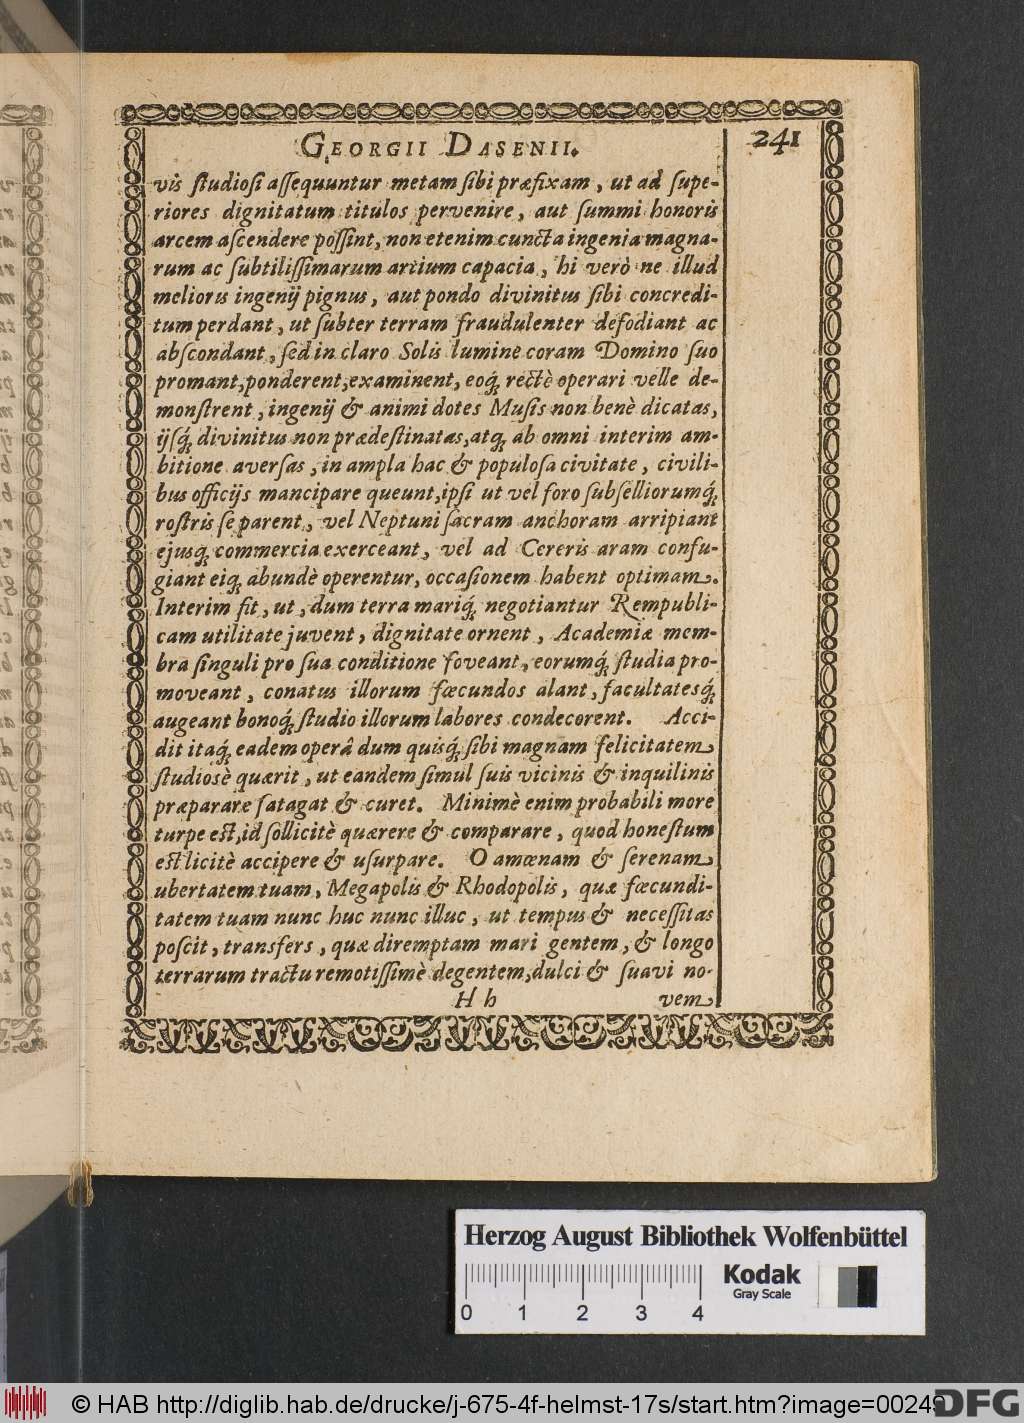 GEORGII DASENII. 241
vis ſtudioſi aſſequuntur metam ſibi præfixam, ut ad ſupe-
riores dignitatum titulos pervenire, aut ſummi honoris
arcem aſcendere poſſint, non etenim cuncta ingenia magna-
rum ac ſubtiliſſimarum artium capacia, hi verò ne illud
melioris ingenij pignus, aut pondo divinitus ſibi concredi-
tum perdant, ut ſubter terram fraudulenter defodiant ac
abſcondant, ſed in claro Solis lumine coram Domino ſuo
promant, ponderent, examinent, eoq́; rectè operari velle de-
monſtrent, ingenij & animi dotes Muſis non benè dicatas,
ijſq́; divinitus non prædeſtinatas, atq; ab omni interim am-
bitione averſas, in ampla hac & populoſa civitate, civili-
bus officijs mancipare queunt, ipſi ut vel foro ſubſelliorumq́;
roſtris ſe parent, vel Neptuni ſacram anchoram arripiant
ejusq́; commercia exerceant, vel ad Cereris aram confu-
giant eiq́; abundè operentur, occaſionem habent optimam.
Interim fit, ut, dum terra mariq́; negotiantur Rempubli-
cam utilitate juvent, dignitate ornent, Academiæ mem-
bra ſinguli pro ſua conditione foveant, eorumq́; ſtudia pro-
moveant, conatus illorum fœcundos alant, facultatesq́;
augeant bonoq́; ſtudio illorum labores condecorent. Acci-
dit itaq́; eadem operâ dum quisq́; ſibi magnam felicitatem
ſtudiosè quærit, ut eandem ſimul ſuis vicinis & inquilinis
præparare ſatagat & curet. Minimè enim probabili more
turpe eſt, id ſollicitè quærere & comparare, quod honeſtum
eſt licitè accipere & uſurpare. O amœnam & ſerenam
ubertatem tuam, Megapolis & Rhodopolis, quæ fœcundi-
tatem tuam nunc huc nunc illuc, ut tempus & neceſſitas
poſcit, transfers, quæ diremptam mari gentem, & longo
terrarum tractu remotiſſimè degentem, dulci & ſuavi no-
H h vem
Herzog August Bibliothek Wolfenbüttel
Kodak
Gray Scale
0 1 2 3 4
© HAB http://diglib.hab.de/drucke/j-675-4f-helmst-17s/start.htm?image=00249
DFG